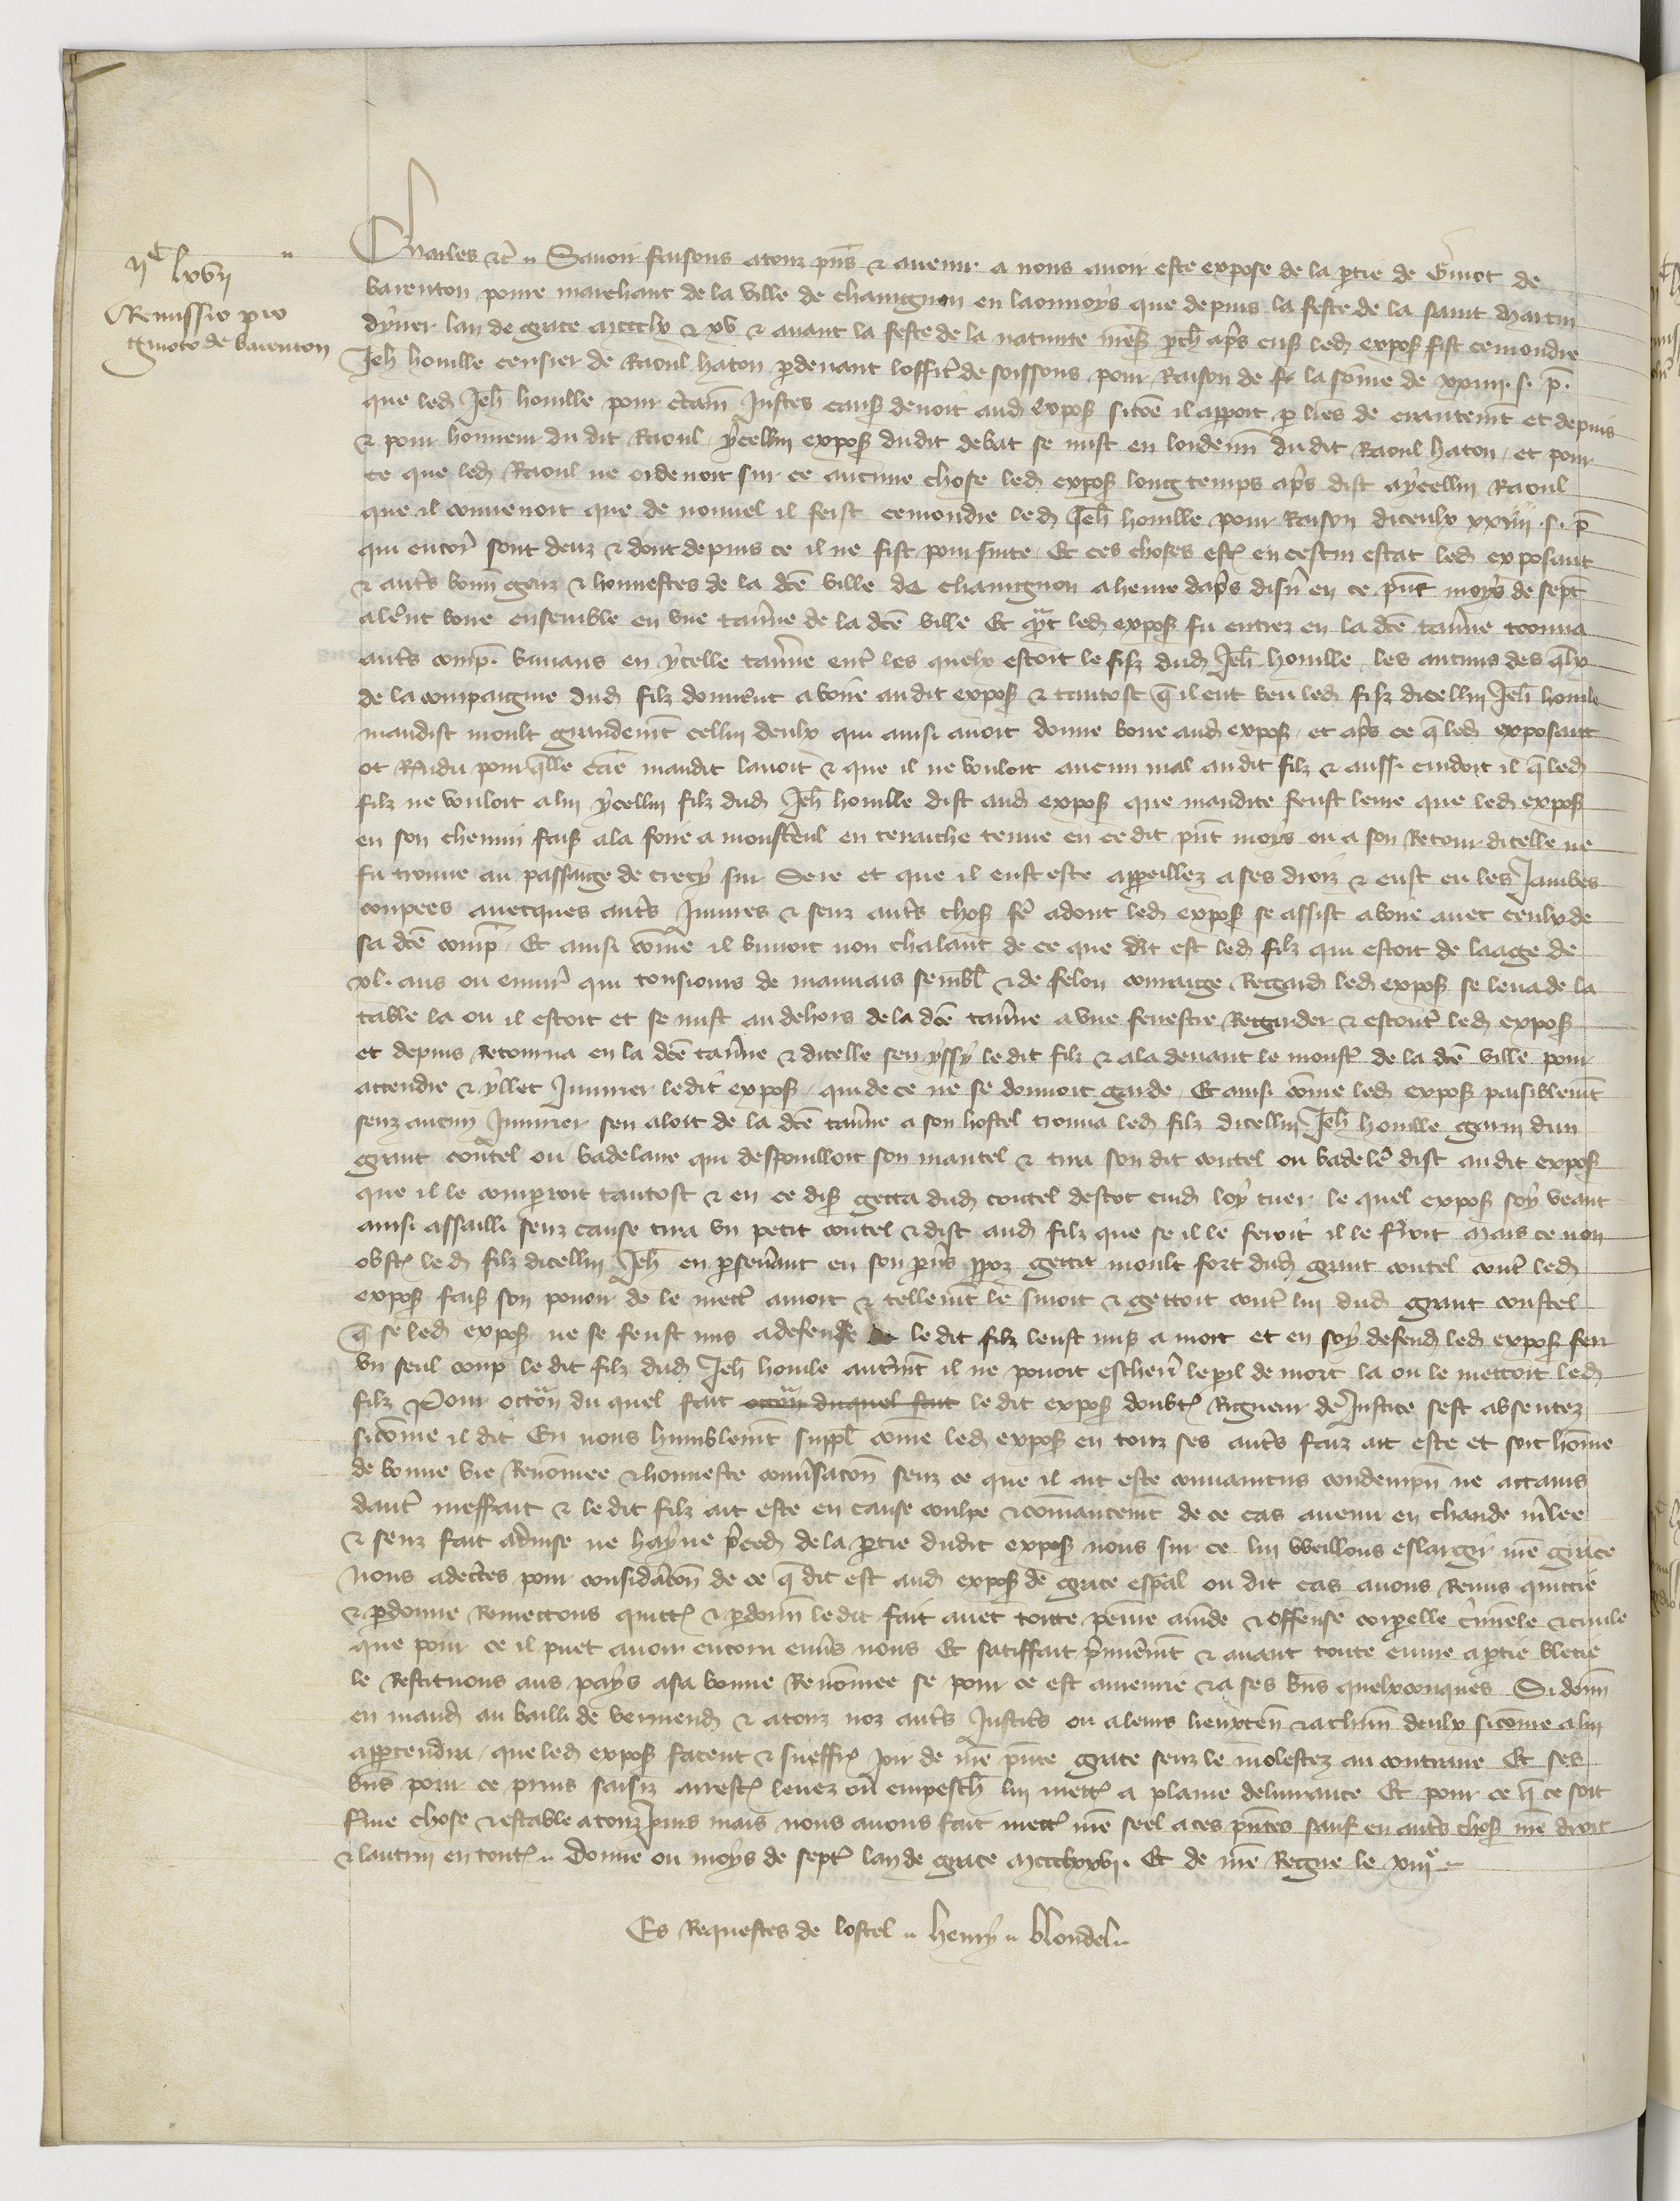 IIc LXVII
Remissio pro
Guioto de Barenton
Charles etc. Savoir faisons a touz pns et avenir a nous avoir este expose de la ptie de Guiot de
Barenton povre marchant de la ville de Chavignon en Laonnoys que depuis la feste de la saint Martin
dyver lan de grace mccclx et xv et avant la feste de la nativite mes prch aprs ens led expos fist cemondre
Jeh Houille censier de Raoul Haton pdevant loffic de Soissons pour raison de la some de XXIIII s. p.
que led Jeh Houille pour ctain justes caus devoit aud expos sicoe il apparoit p lres de et depuis
et pour honneur du dit Raoul ycellui expos dudit debat se mist en lordenn du dit Raoul Haton et pour
ce que led Raoul ne ordenoit sur ce aucune chose led expos long temps aprs dist a ycellui Raoul
que il convenoit que de nouvel il feist cemondre led Jeh Houille pour raison diceulx XXIIII s. p
qui encor sont deuz et dont depuis ce il ne fist poursuite Et ces choses est en cestui estat led exposant
et auts bonn genz et honnestes de la dce ville de Chavignon a heure daprs disn en ce pnt moys de sept
alernt boire ensemble en une taverne de la dce ville Et qnt led expos fu entrez en la dce taverne trouva
auts comp. buvans en ycelle taverne entr les quelx estoit le filz dud Jeh Houille les aucuns des qlx
de la compaignie dud filz donnernt a boire audit expos et tantost q il eut beu led filz dicellui Jeh Houile
maudist moult grandemt cellui deulx qui ainsi avoit donne boire aud expos et aprs ce q led exposant
ot pour qlle cae maudit lavoit et que il ne vouloit aucun mal au dit filz et aussi cuidoit il q led
filz ne vouloit a lui ycellui filz dud Jeh Houille dist aud expos que maudite feust leure que led expos
en son chemin fais a la foire a Monsteul en Teraiche tenue en ce dit pnt moys ou a son retour dicelle ne
fu trouve au passaige de Crecy sur Sere et que il eust este appeillez a ses droiz et eust eu les jambes
coupees avecques auts injures et senz auts chos fe adont led expos se assist a boire avec ceulx de
sa dce comp Et ainsi come il buvoit non chalant de ce que dit est led filz qui estoit de laage de
XL ans ou environ qui tousjours de mauvais sembl et de felon couraige regard led expos se leva de la
table la ou il estoit et se mist au dehors de la dce taverne a une fenestre regarder et escout led expos
et depuis retourna en la dce taverne et dicelle sen yssy le dit filz et ala devant le monst de la dce ville pour
attendre et yllec injurier ledit expos qui de ce ne se donnoit garde Et ainsi come led expos paisiblemt
senz aucun injurier sen aloit de la dce taverne a son hostel trouva led filz dicellui Jeh Houille garni dun
grant coutel ou badelaire qui despouilloit son mantel et tira son dit coutel ou badele dist audit expos
que il le comparroit tantost et en ce dis getta dud coutel destoc cuid loy tuer le quel expos soy veant
ainsi assailli senz cause tira un petit coutel et dist aud filz que se il le feroit il le friroit Mais ce non
obst led filz dicellui Jeh en psevant en son prs ppoz gettit moult fort dud grant coutel cont led
expos fais son povoir de le mett a mort et tellemt le suioit et gettoit cont lui dud grant coustel
q se led expos ne se feust mis a defense le dit filz leust mis a mort et en soy defend led expos feri
un seul coup le dit filz dud Jeh Houile autmt il ne povoit eschev le pil de mort la ou le mettoit led
filz Pour occon du quel fait occon duquel fait le dit expos doubt rigueur de justice sest absentez
sicome il dit En nous humblemt suppl come led expos en touz ses auts faiz ait este et soit home
de bonne vie renomee et honneste conversacon senz ce que il ait este convaincus condempn ne attains
daut meffait et le dit filz ait este en cause coulpe et comancemt de ce cas avenu en chaude mlee
et senz fait advise ne hayne pced de la ptie dudit expos nous sur ce lui veillons eslargir nre grace
Nous adectes pour considacon de ce q dit est aud expos de grace espal ou dit cas avons remis quittie
et pdonne remettons quitt et pdonn le dit fait avec toute peine amde et offense corpelle crimele et civile
que pour ce il puet avoir encoru envs nous Et satiffait pmiemt et avant toute euvre a ptie blecie
le restituons aus pays a sa bonne renomee se pour ce est amenrie et a ses bns quelxconques Si donn
en mand au bailli de Vermend et a touz noz auts justics ou a leurs lieuxten et a chun deulx sicome a lui
appartendra que led expos facent et sueff joir de nre pnte grace senz le molestez au contraire Et ses
bns pour ce prins saisiz arrest levez ou empesch lui mett a plaine delivrance Et pour ce q ce soit
ferme chose et estable a touz jours mais nous avons fait mett nre seel a ces pntes sauf en auts chos nre droit
et lautrui en tout Donne ou moys de sept lan de grace mccclxxvi. Et de nre regne le XIIIe
Es requestes de lostel Henry Blondel